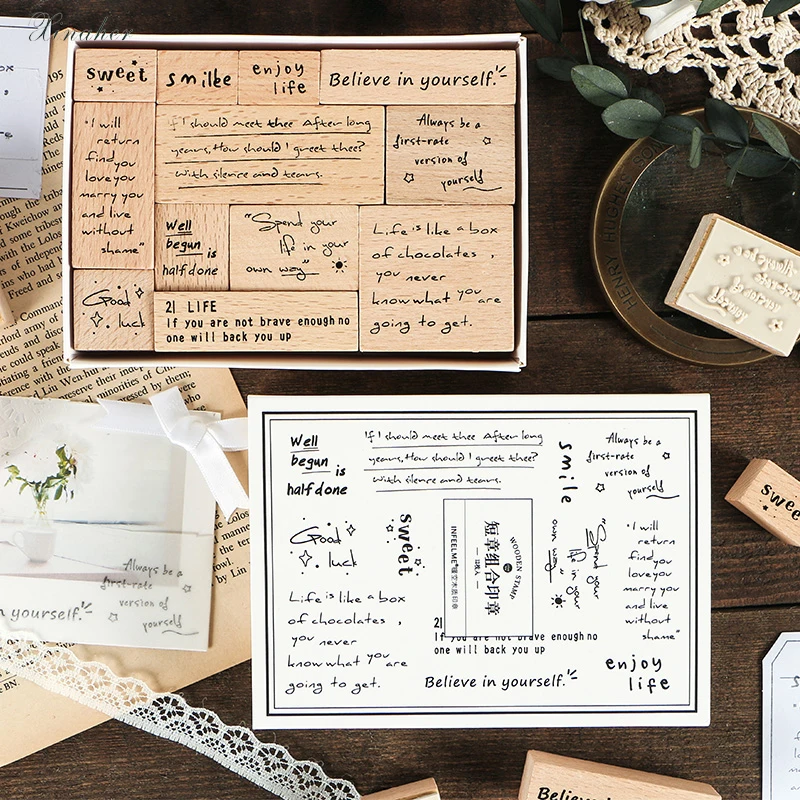 Xinaher
sweet
smilee
enjoy
life
Believe in yourself.
"I will
return
find you
love you
marry you
and live
without
shame"
If I should meet thee After long
years, How should I greet thee?
With silence and tears.
Always be a
first-rate
version of
yourself
Well
begun is
half done
"Spend your
life in your
own way"
Life is like a box
of chocolates ,
you never
know what you are
going to get.
Good
luck
21 LIFE
If you are not brave enough no
one will back you up
Well
begun is
half done
If I should meet thee After long
years, How should I greet thee?
With silence and tears.
smile
Always be a
first-rate
version of
yourself
Good
luck
sweet
INFEELME
短章组合印章
WOODEN STAMP
"Spend your
life in your
own way
"I will
return
find you
love you
marry you
and live
without
shame"
Life is like a box
of chocolates ,
you never
know what you are
going to get.
21
If you are not brave enough no
one will back you up
Believe in yourself.
enjoy
life
Always be a
first-rate
version of
yourself
n yourself.
HENRY
swee
Believe